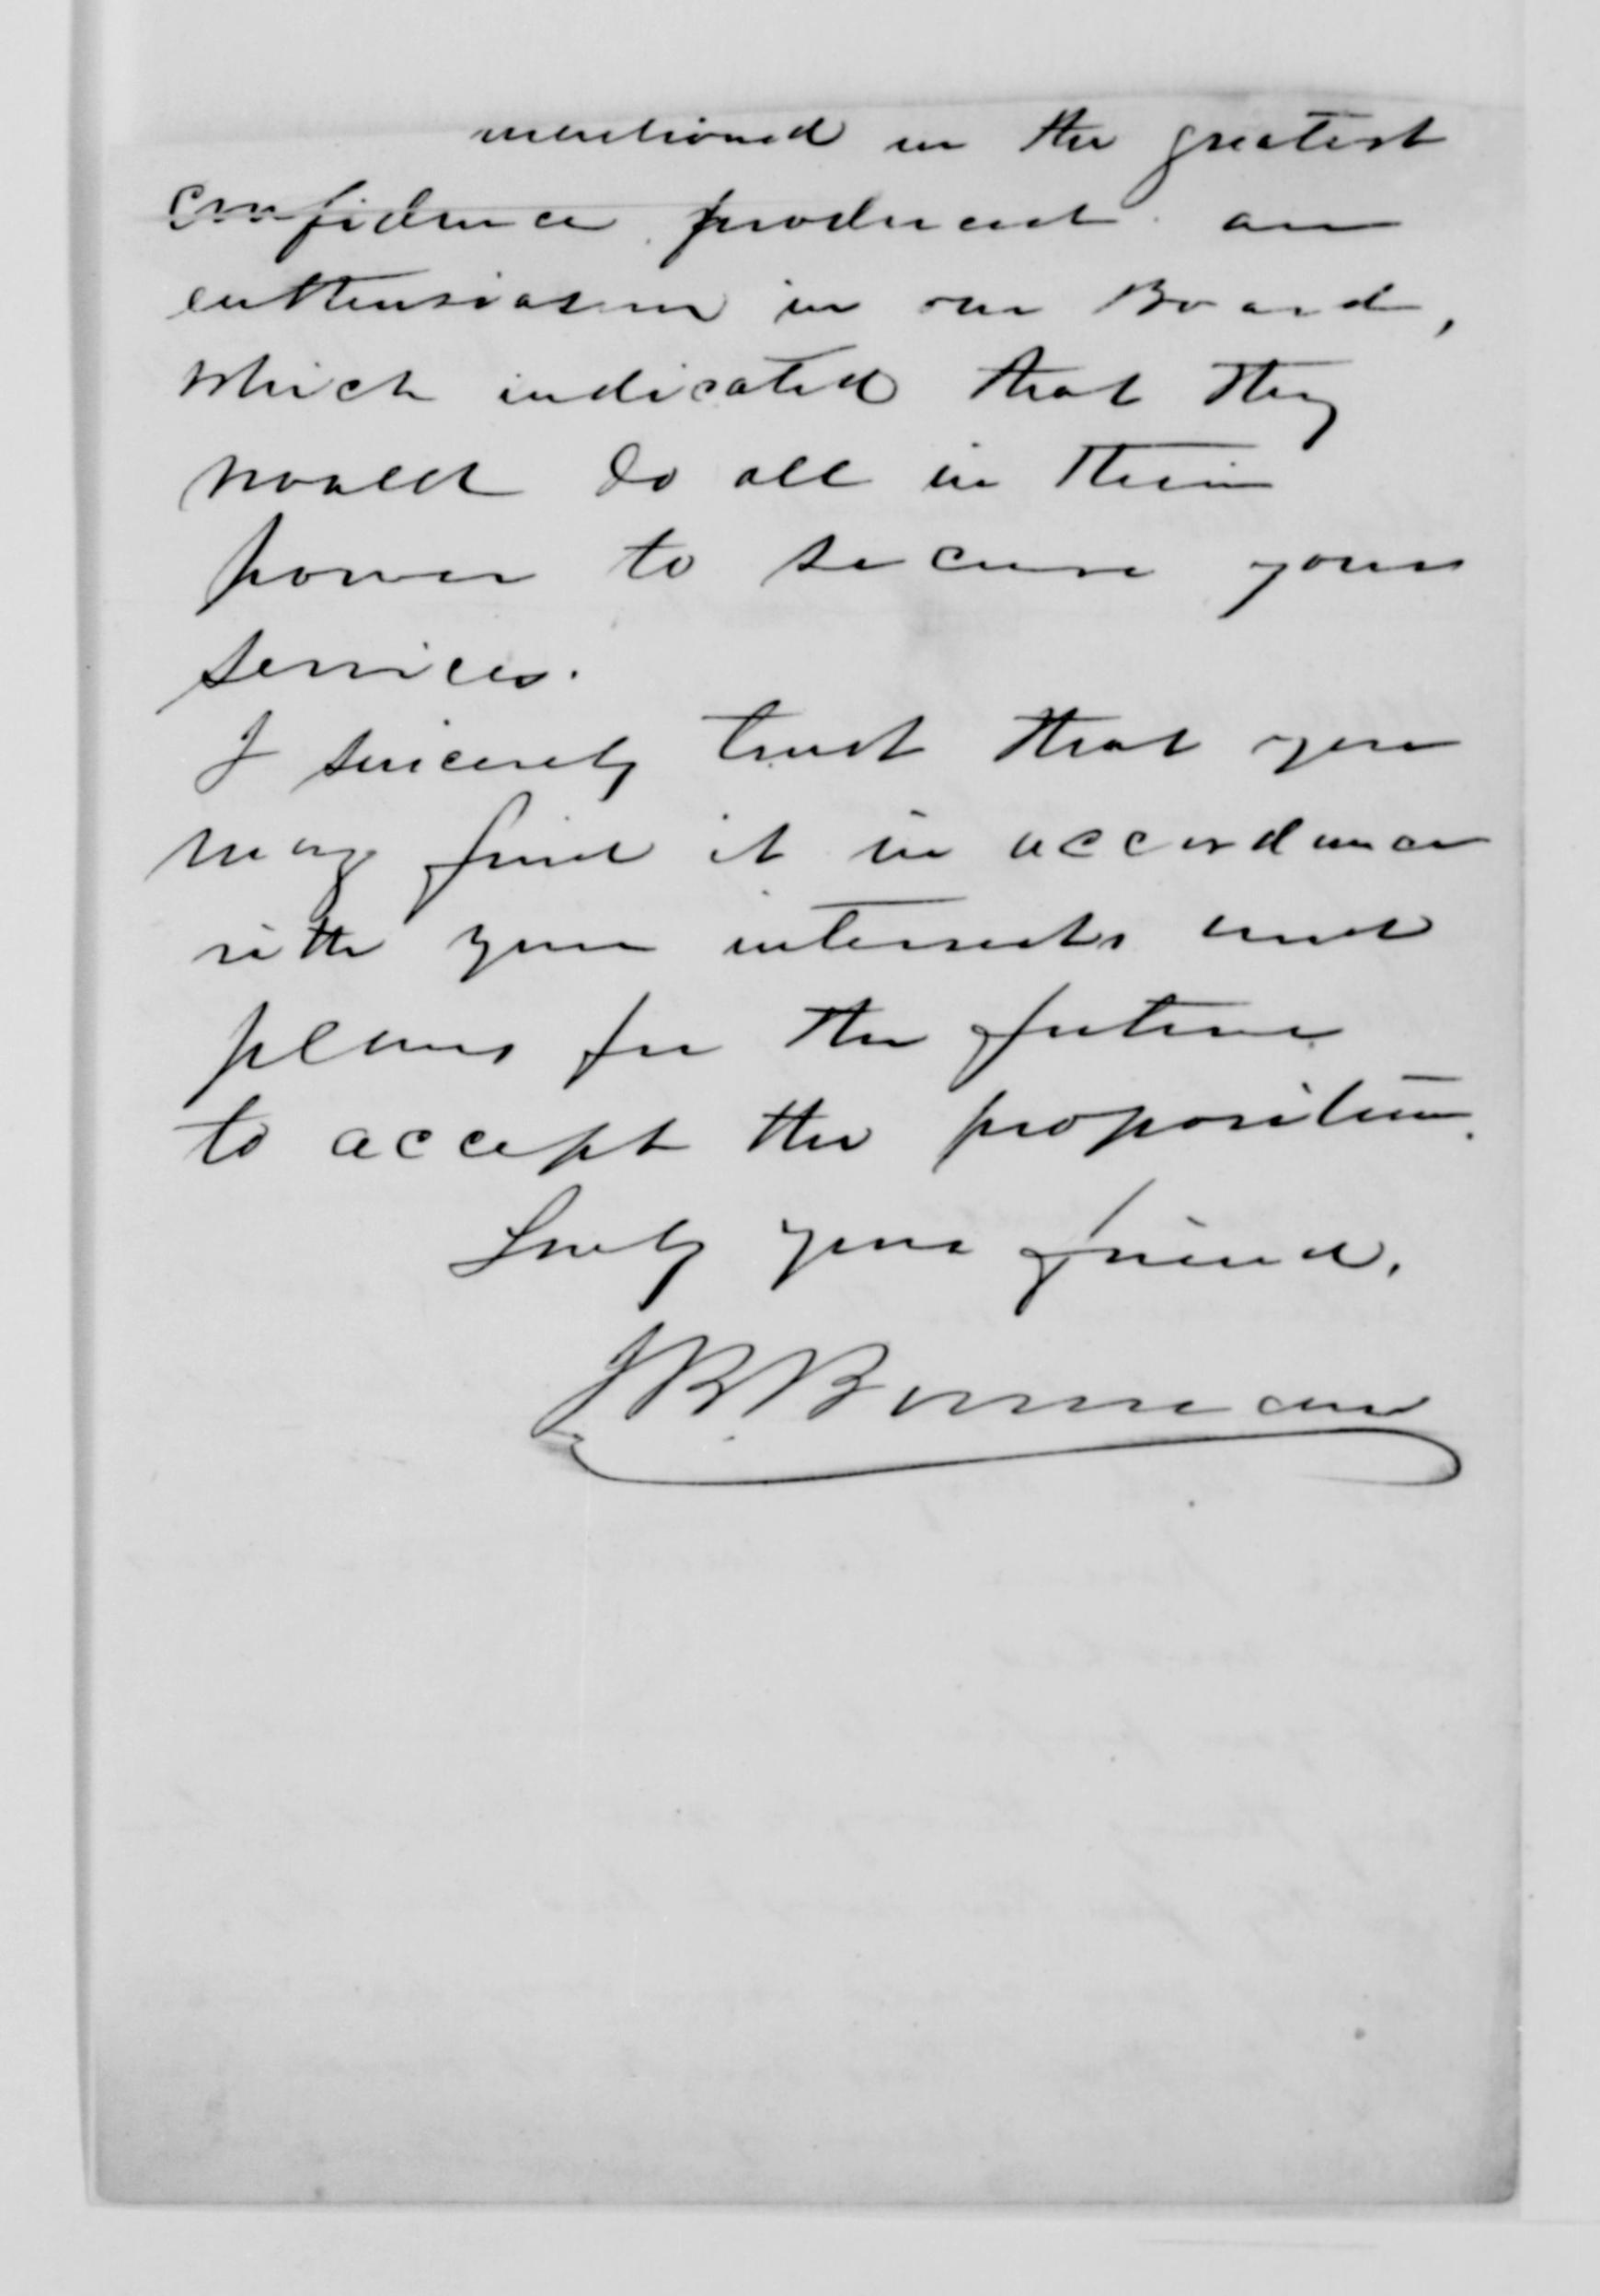 mentioned in the greatest
confidence produced an
enthusiasm in our Board,
which indicated that they
would do all in their
power to secure your
services.
I sincerely trust that you
may find it in accordance
with your interests and
plans for the future
to accept the proposition.
Truly your friend.
JB